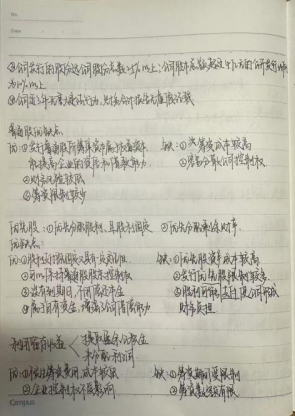 ③公司发行的股份达公司股份总数25%以上；公司股本总额超过4亿元的公开发行比例为10%以上
④公司近3年无重大违法行为，财务会计报告无虚假记载
普通股的优缺点：
优：①发行普通股筹措资本 缺：①筹资成本较高
能提高企业的资信和借款能力 ②容易分散公司控制权
②财务风险较低
③筹资限制较少
优先股：①优先分配股利，且股利固定 ②优先分配剩余财产
优缺点：
优：①股利支付既固定又具有一定灵活性 缺：①优先股资本成本较高
②可以保持普通股股东控制权 ②发行优先股限制较多
③没有到期日，不用偿还本金 ③股利可能
④属于自有资金，增强了公司借款能力 财务负担
利润留存收益 提取盈余公积金
未分配利润
优：①筹资费用，成本较低 缺：①筹资期间受限制
②企业控制权不受影响 ②筹资数额有限
Campus